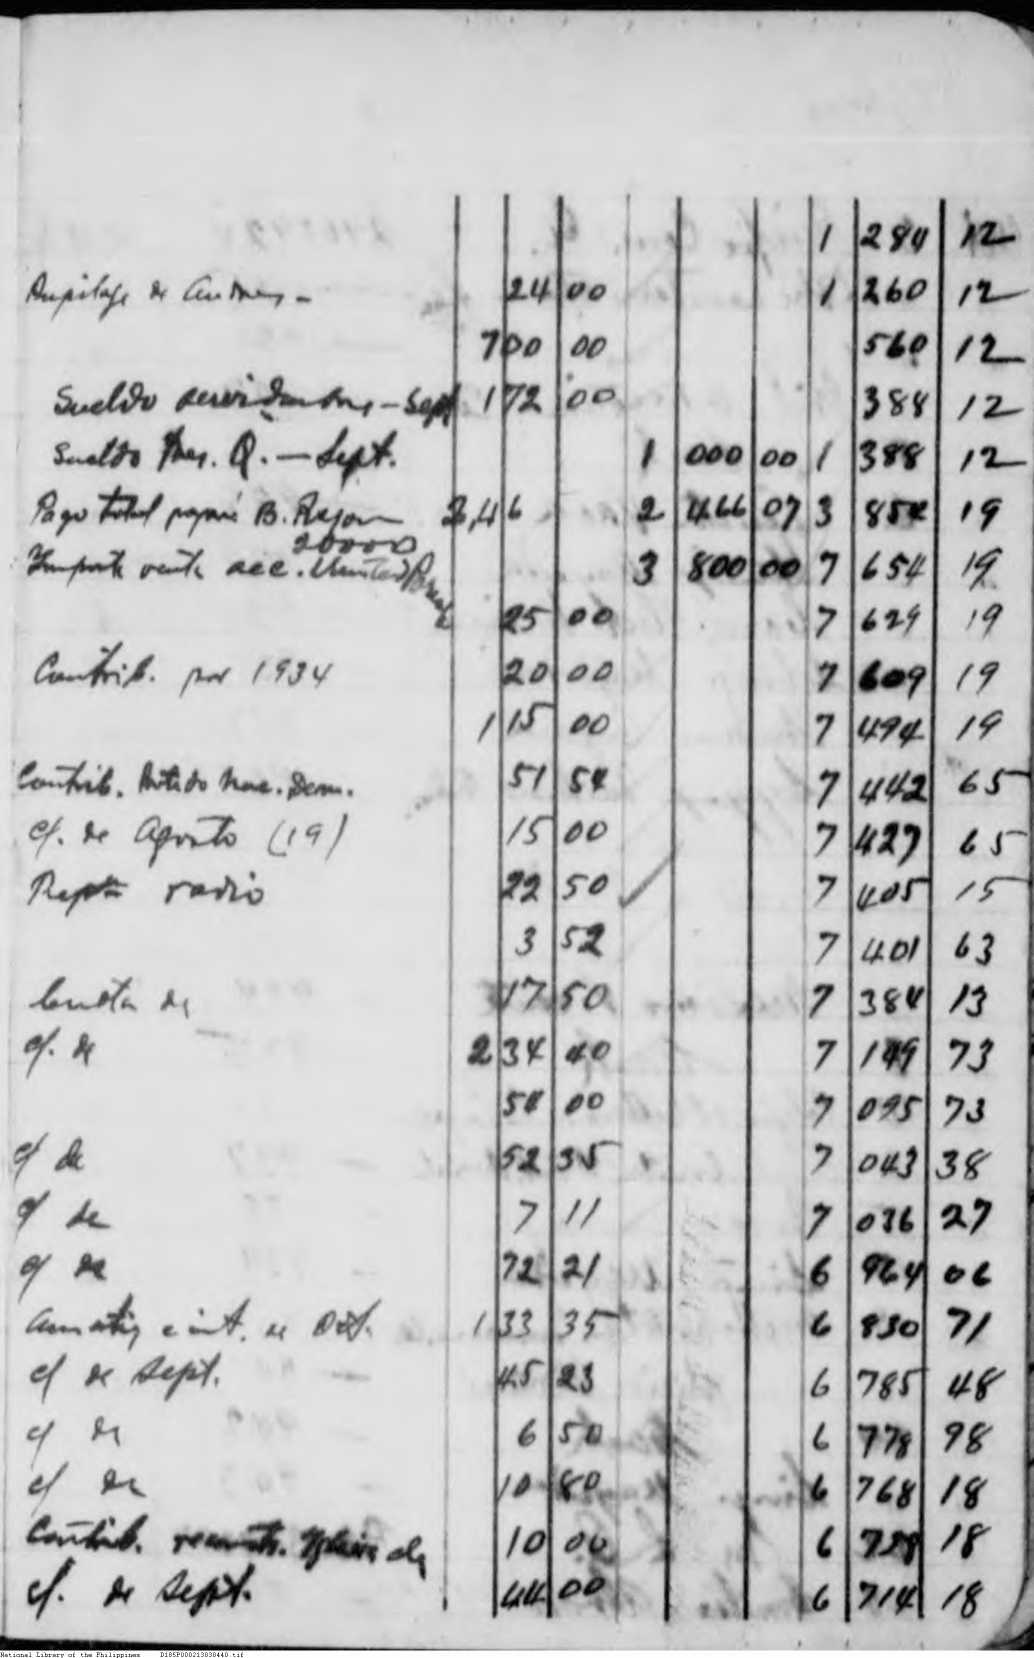 1 284 12
de 24 00 1 260 12
700 00 560 12
Sueldo – Sept 172 00 388 12
Sueldo Q. – Sept. 1 000 00 1 388 12
Pago total B. 2,46 2 466 07 3 854 19
20000
Importe venta acc. United 3 800 00 7 654 19
25 00 7 629 19
Contrib. por 1934 20 00 7 609 19
115 00 7 494 19
Contrib. Partido Nac. Dem. 51 54 7 442 65
c/. de Agosto (19) 15 00 7 427 65
radio 22 50 7 405 15
3 52 7 401 63
Cuota de 17 50 7 384 13
c/. de 234 40 7 149 73
54 00 7 095 73
c/ de 52 35 7 043 38
c/ de 7 11 7 036 27
c/ de 72 21 6 964 06
Amortiz e int. de Oct. 133 35 6 830 71
c/ de Sept. 45 23 6 785 48
c/ de 6 50 6 778 98
c/ de 10 80 6 768 18
Contrib. 10 00 6 758 18
c/. de Sept. 44 00 6 714 18
National Library of the Philippines D185P000213030440.tif